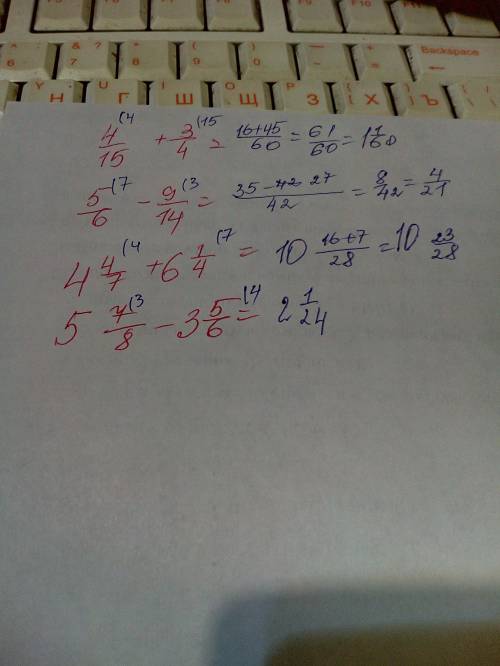 & 6 7 8 9 0 – + = Backspace
У Н Г Ш Щ З Х Ъ
4/15 (4 + 3/4 (15 = 16+45/60 = 61/60 = 1 1/60
5/6 (7 - 9/14 (3 = 35 - 27/42 = 8/42 = 4/21
4 4/7 (4 + 6 1/4 (7 = 10 16+7/28 = 10 23/28
5 7/8 (3 - 3 5/6 (4 = 2 1/24